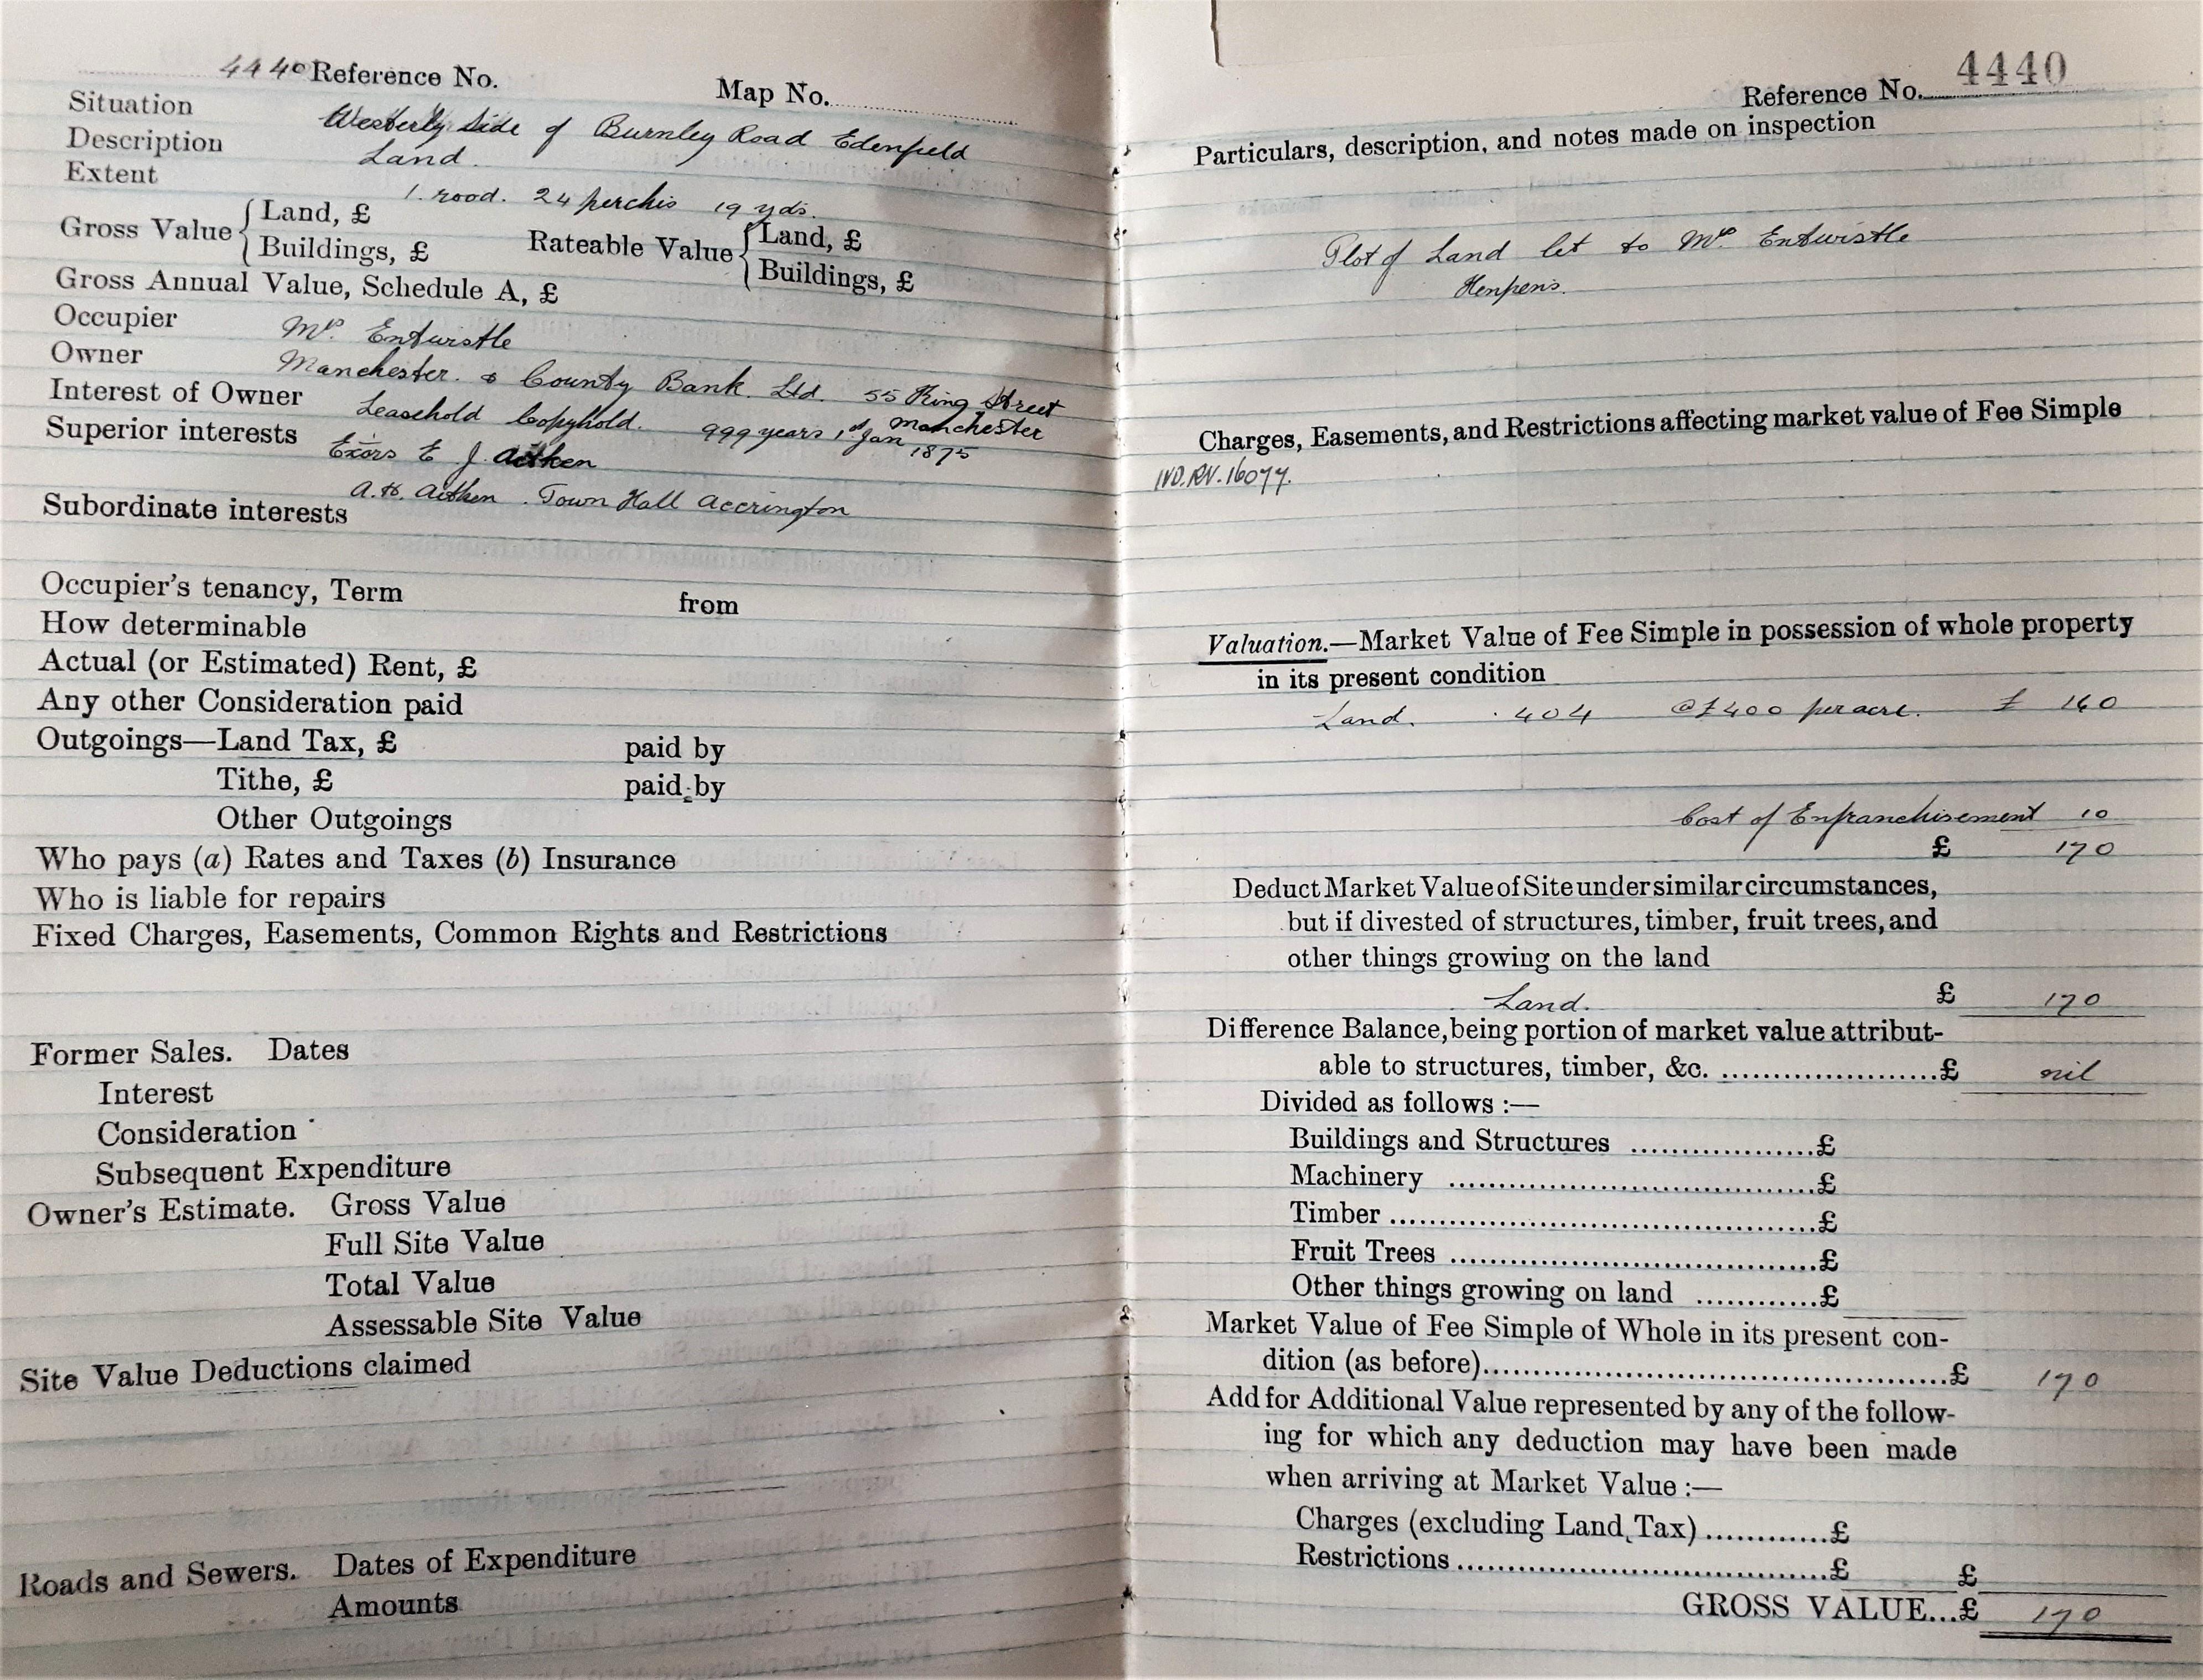 4440 Reference No. Map No.
Situation Westerly Side of Burnley Road Edenfield
Description Land.
Extent 1. rood. 24 perchis 19 yds.
Gross Value { Land, £ Rateable Value { Land, £
Buildings, £ Buildings, £
Gross Annual Value, Schedule A, £
Occupier Mr. Entwistle
Owner Manchester. & County Bank. Ltd. 55 King Street
Manchester
Interest of Owner Leasehold Copyhold. 999 years 1st Jan 1875
Superior interests Exors E J. Aitken
A. H. Aitken. Town Hall Accrington
Subordinate interests
Occupier's tenancy, Term from
How determinable
Actual (or Estimated) Rent, £
Any other Consideration paid
Outgoings—Land Tax, £ paid by
Tithe, £ paid by
Other Outgoings
Who pays (a) Rates and Taxes (b) Insurance
Who is liable for repairs
Fixed Charges, Easements, Common Rights and Restrictions
Former Sales. Dates
Interest
Consideration
Subsequent Expenditure
Owner's Estimate. Gross Value
Full Site Value
Total Value
Assessable Site Value
Site Value Deductions claimed
Roads and Sewers. Dates of Expenditure
Amounts
Reference No. 4440
Particulars, description, and notes made on inspection
Plot of Land let to Mr. Entwistle
Henpens.
Charges, Easements, and Restrictions affecting market value of Fee Simple
IVD.RV.16077.
Valuation.—Market Value of Fee Simple in possession of whole property
in its present condition
Land. .404 @ £400 per acre. £ 160
Cost of Enfranchisement 10
£ 170
Deduct Market Value of Site under similar circumstances,
but if divested of structures, timber, fruit trees, and
other things growing on the land
Land. £ 170
Difference Balance, being portion of market value attribut-
able to structures, timber, &c. ....................£ nil
Divided as follows :—
Buildings and Structures ..................£
Machinery ....................................£
Timber ..........................................£
Fruit Trees ....................................£
Other things growing on land ............£
Market Value of Fee Simple of Whole in its present con-
dition (as before)..............................................£ 170
Add for Additional Value represented by any of the follow-
ing for which any deduction may have been made
when arriving at Market Value :—
Charges (excluding Land Tax) ............£
Restrictions ....................................£ £
GROSS VALUE...£ 170